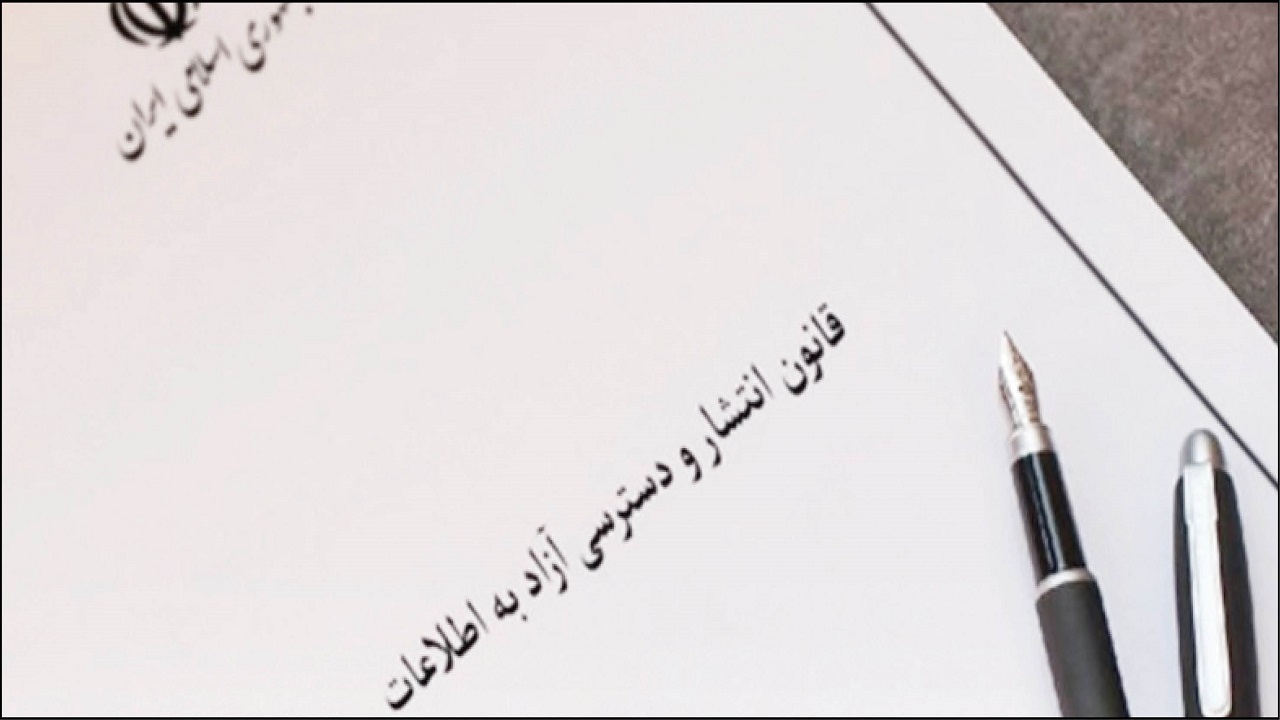 اسلامی ایران
قانون انتشار و دسترسی آزاد به اطلاعات